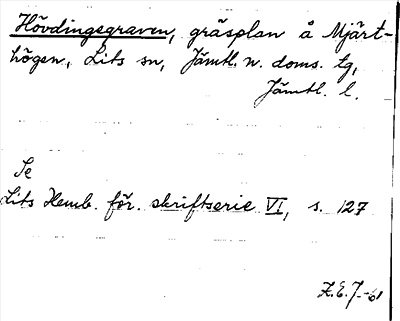 Hövdingsgraven, gräsplan å Mjärt-
högen, Lits sn, Jämtl. n. doms. tg,
Jämtl. l.
Se
Lits Hemb. för. skriftserie VI, s. 127
Z.E.J.-61